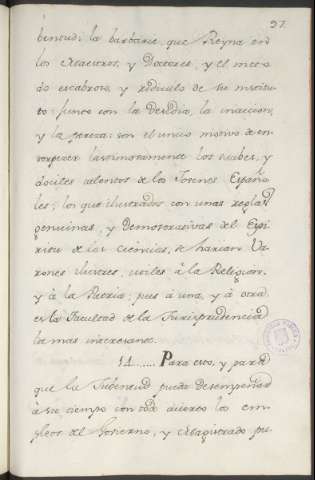 37.
bentud: la barbarie que Reyna en
los Maestros, y Doctores, y el meto-
do escabroso, y rediculo de su institu-
to: junto con la Desidia, la inaccion,
y la pereza: son el unico motivo de en-
torpecer lastimosamente los nobles, y
dociles talentos de los Jovenes Españo-
les; los que ilustrados con unas reglas
genuinas, y Demostrativas del Espi-
ritu de las Ciencias, se harian Va-
rones ilustres, utiles à la Religion,
y à la Patria; pues à una, y à otra
es la Facultad de la Jurisprudencia
la mas interesante.
11..... Para esto, y para
que la Jubentud pueda desempeñar
à su tiempo con todo acierto los em-
pleos del Govierno, y Magistrado pu-